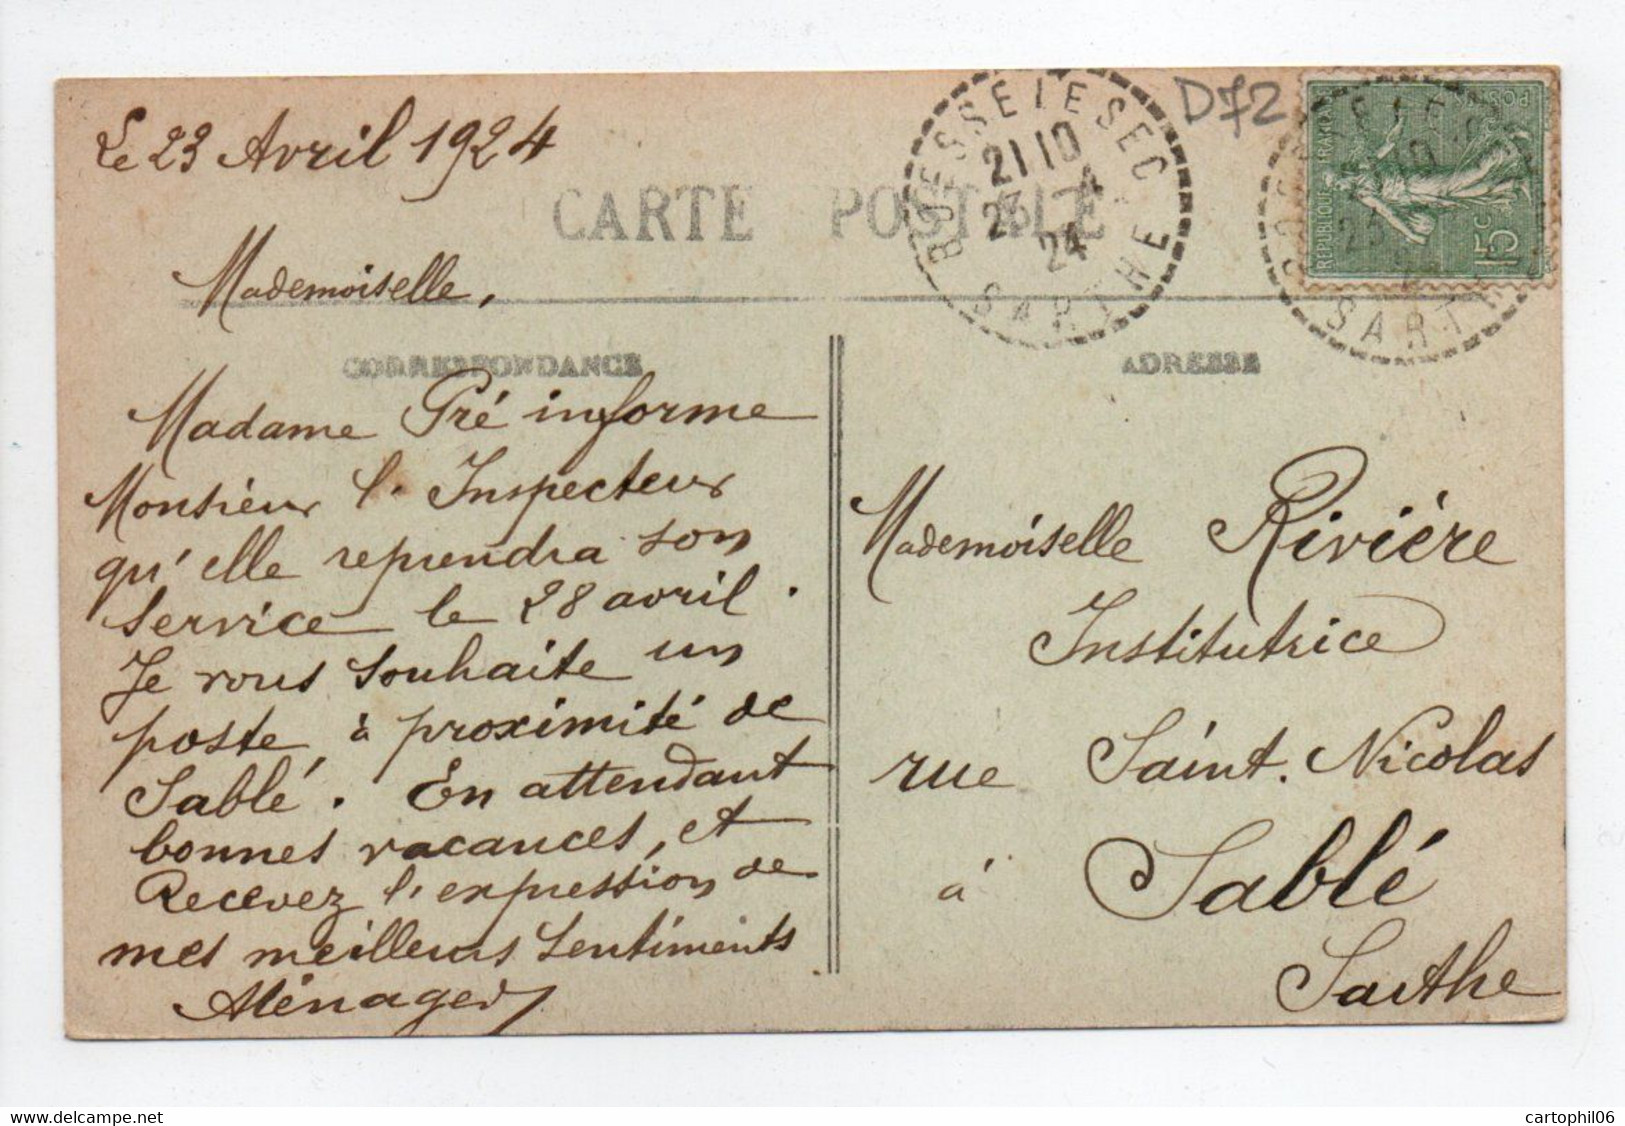 Le 23 Avril 1924
D72
CARTE POSTALE
BESSE
21 10
23 4
24
SARTHE
REPUBLIQUE FRANÇAISE
POSTES
15c
SARTHE
Mademoiselle,
CORRESPONDANCE
Madame Pré informe
Monsieur l'Inspecteur
qu'elle reprendra son
service le 28 avril.
Je vous souhaite un
poste à proximité de
Sablé. En attendant
bonnes vacances, et
Recevez l'expression de
mes meilleurs sentiments
ADRESSE
Mademoiselle Rivière
Institutrice
rue Saint. Nicolas
à Sablé
Sarthe
delcampe.net
cartophil06